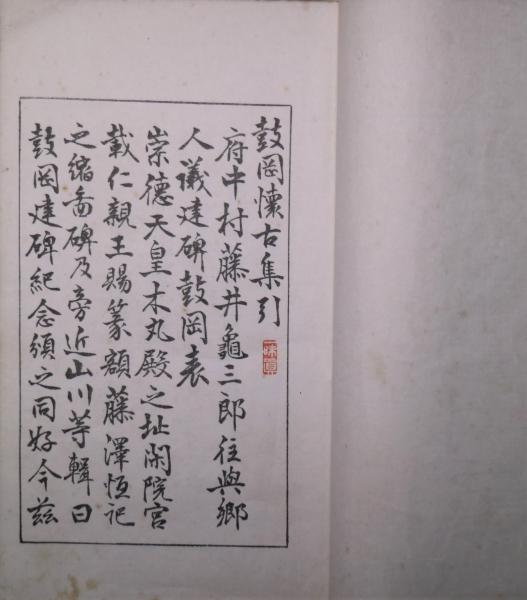 鼓岡懷古集引
府中村藤井龜三郎往與鄉
人議建碑鼓岡表
崇德天皇木丸殿之址閑院宮
載仁親王賜篆額藤澤恒記
之縮啚碑及旁近山川等輯曰
鼓岡建碑紀念頒之同好今玆